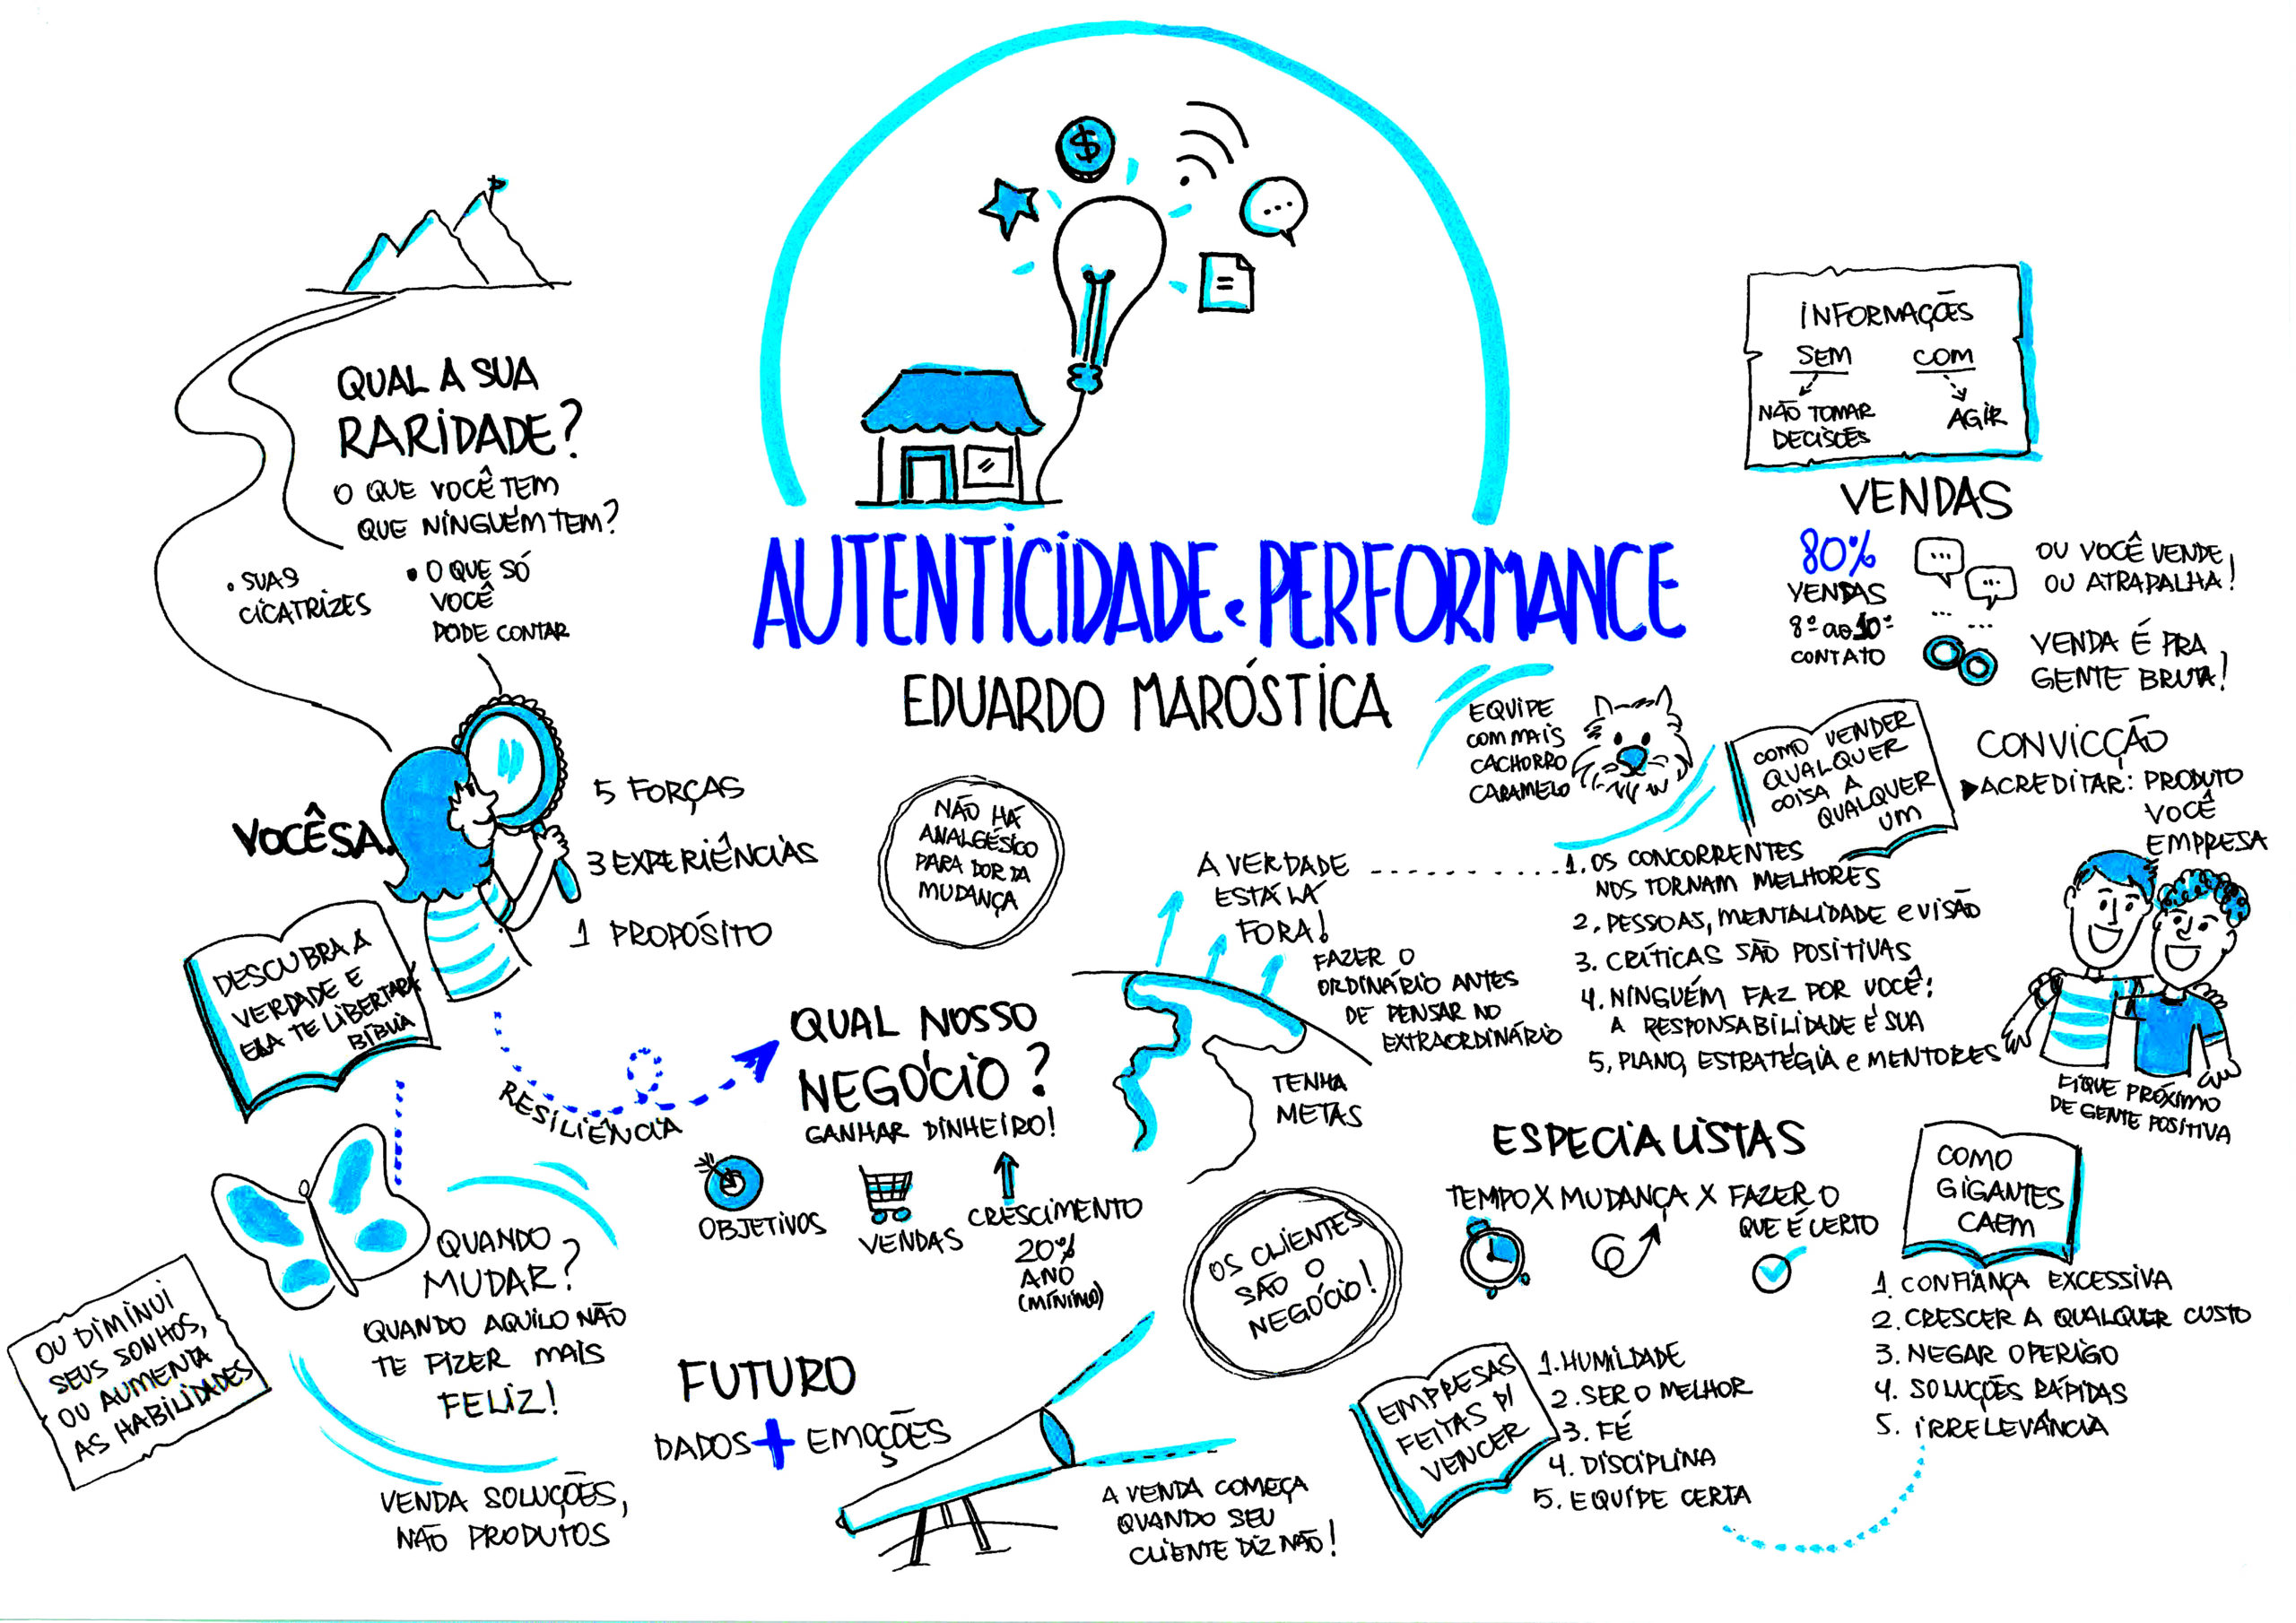 AUTENTICIDADE e PERFORMANCE
EDUARDO MARÓSTICA
QUAL A SUA
RARIDADE?
O QUE VOCÊ TEM
QUE NINGUÉM TEM?
• SUAS
CICATRIZES
• O QUE SÓ
VOCÊ
PODE CONTAR
VOCÊSA.
5 FORÇAS
3 EXPERIÊNCIAS
1 PROPÓSITO
DESCUBRA A
VERDADE E
ELA TE LIBERTARÁ
BÍBLIA
RESILIÊNCIA
QUANDO
MUDAR?
QUANDO AQUILO NÃO
TE FIZER MAIS
FELIZ!
OU DIMINUI
SEUS SONHOS,
OU AUMENTA
AS HABILIDADES
VENDA SOLUÇÕES,
NÃO PRODUTOS
NÃO HÁ
ANALGÉSICO
PARA DOR DA
MUDANÇA
QUAL NOSSO
NEGÓCIO?
GANHAR DINHEIRO!
OBJETIVOS
VENDAS
CRESCIMENTO
20%
ANO
(MÍNIMO)
FUTURO
DADOS + EMOÇÕES
A VENDA COMEÇA
QUANDO SEU
CLIENTE DIZ NÃO!
OS CLIENTES
SÃO O
NEGÓCIO!
A VERDADE
ESTÁ LÁ
FORA!
FAZER O
ORDINÁRIO ANTES
DE PENSAR NO
EXTRAORDINÁRIO
TENHA
METAS
INFORMAÇÕES
SEM COM
NÃO TOMAR
DECISÕES
AGIR
VENDAS
80%
VENDAS
8º ao 10º
CONTATO
$
OU VOCÊ VENDE
OU ATRAPALHA!
VENDA É PRA
GENTE BRUTA!
EQUIPE
COM MAIS
CACHORRO
CARAMELO
COMO VENDER
QUALQUER
COISA A
QUALQUER
UM
CONVICÇÃO
ACREDITAR: PRODUTO
VOCÊ
EMPRESA
1. OS CONCORRENTES
NOS TORNAM MELHORES
2. PESSOAS, MENTALIDADE e VISÃO
3. CRÍTICAS SÃO POSITIVAS
4. NINGUÉM FAZ POR VOCÊ:
A RESPONSABILIDADE É SUA
5. PLANO, ESTRATÉGIA e MENTORES
FIQUE PRÓXIMO
DE GENTE POSITIVA
ESPECIALISTAS
TEMPO X MUDANÇA X FAZER O
QUE É CERTO
COMO
GIGANTES
CAEM
1. CONFIANÇA EXCESSIVA
2. CRESCER A QUALQUER CUSTO
3. NEGAR O PERIGO
4. SOLUÇÕES RÁPIDAS
5. IRRELEVÂNCIA
EMPRESAS
FEITAS P/
VENCER
1. HUMILDADE
2. SER O MELHOR
3. FÉ
4. DISCIPLINA
5. EQUIPE CERTA